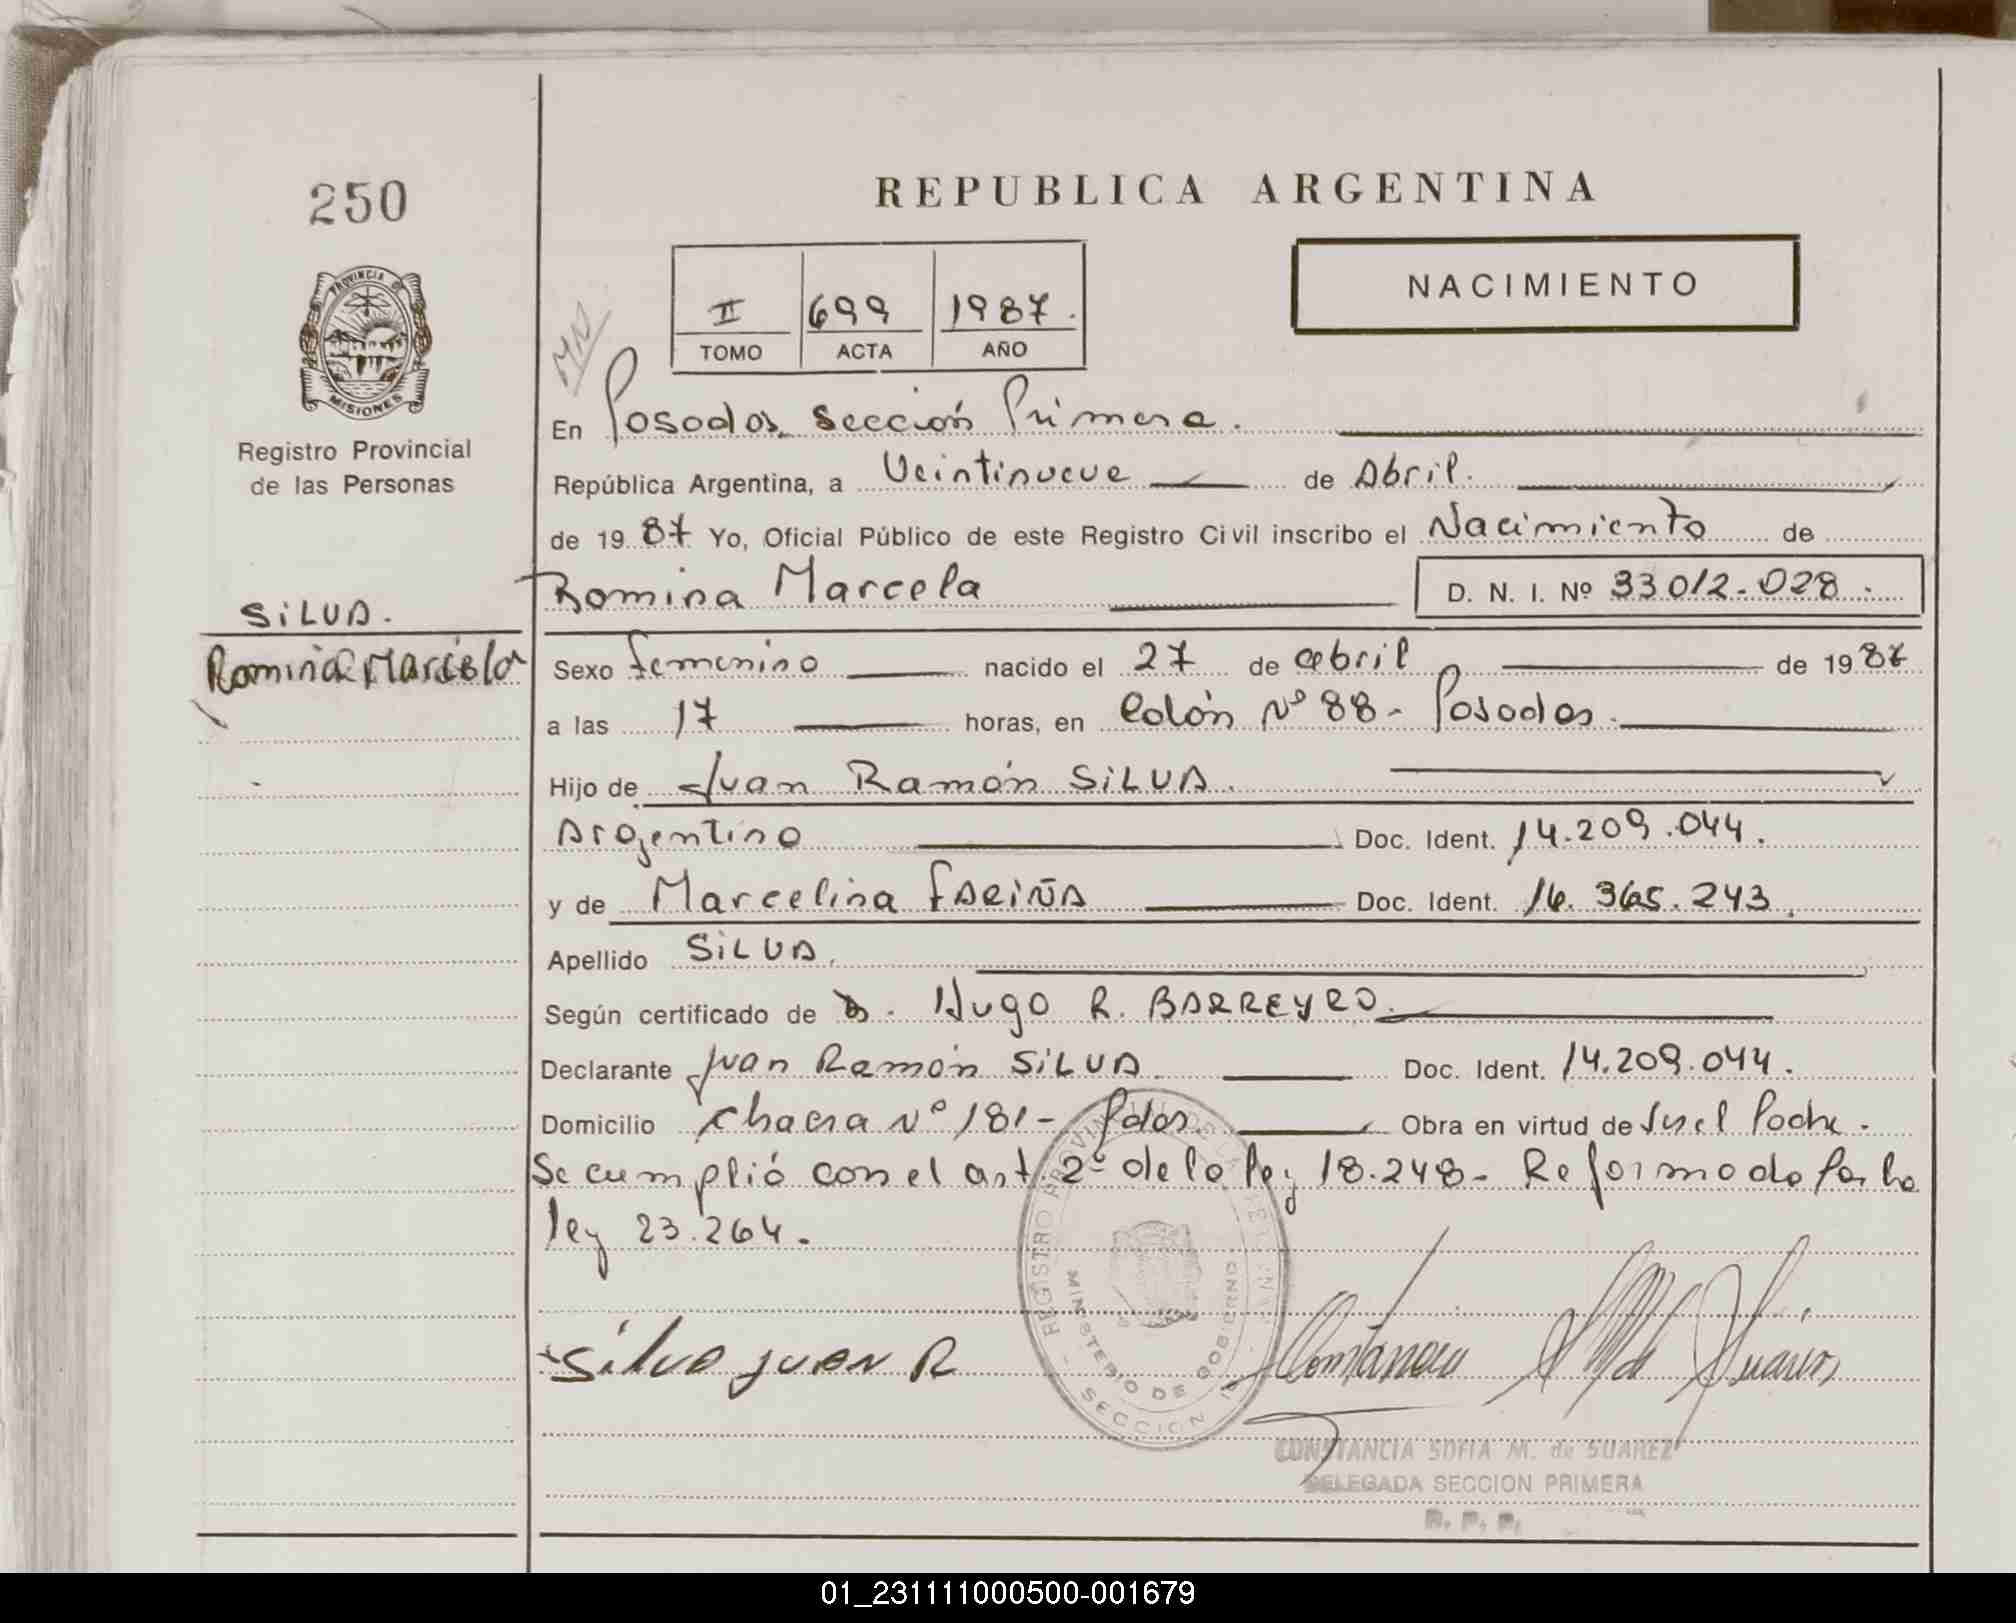 250
PROVINCIA DE
MISIONES
Registro Provincial
de las Personas
SILVA.
Romina Marcela
REPUBLICA ARGENTINA
II 699 1987.
TOMO ACTA AÑO
NACIMIENTO
En Posadas Sección Primera.
República Argentina, a Veintinueve de Abril.
de 1987 Yo, Oficial Público de este Registro Civil inscribo el Nacimiento de
Romina Marcela D. N. I. Nº 33012.028.
Sexo femenino nacido el 27 de abril de 1987
a las 17 horas, en Colón Nº 88 - Posadas.
Hijo de Juan Ramón SILVA.
Argentino Doc. Ident. 14.209.044.
y de Marcelina FARIÑA Doc. Ident. 16.365.243.
Apellido SILVA.
Según certificado de . Hugo R. BARREYRO.
Declarante Juan Ramón SILVA. Doc. Ident. 14.209.044.
Domicilio Chacra Nº 181 - Pdas. Obra en virtud de Ser el Padre.
Se cumplió con el art. 2º de la ley 18.248 - Reformada Por la
ley 23.264.
REGISTRO PROVINCIAL DE LAS PERSONAS
MINISTERIO DE GOBIERNO
SECCION 1ª
Silva Juan R
Constancia de Suárez
CONSTANCIA SOFIA M. de SUAREZ
DELEGADA SECCION PRIMERA
R. P. P.
01_231111000500-001679